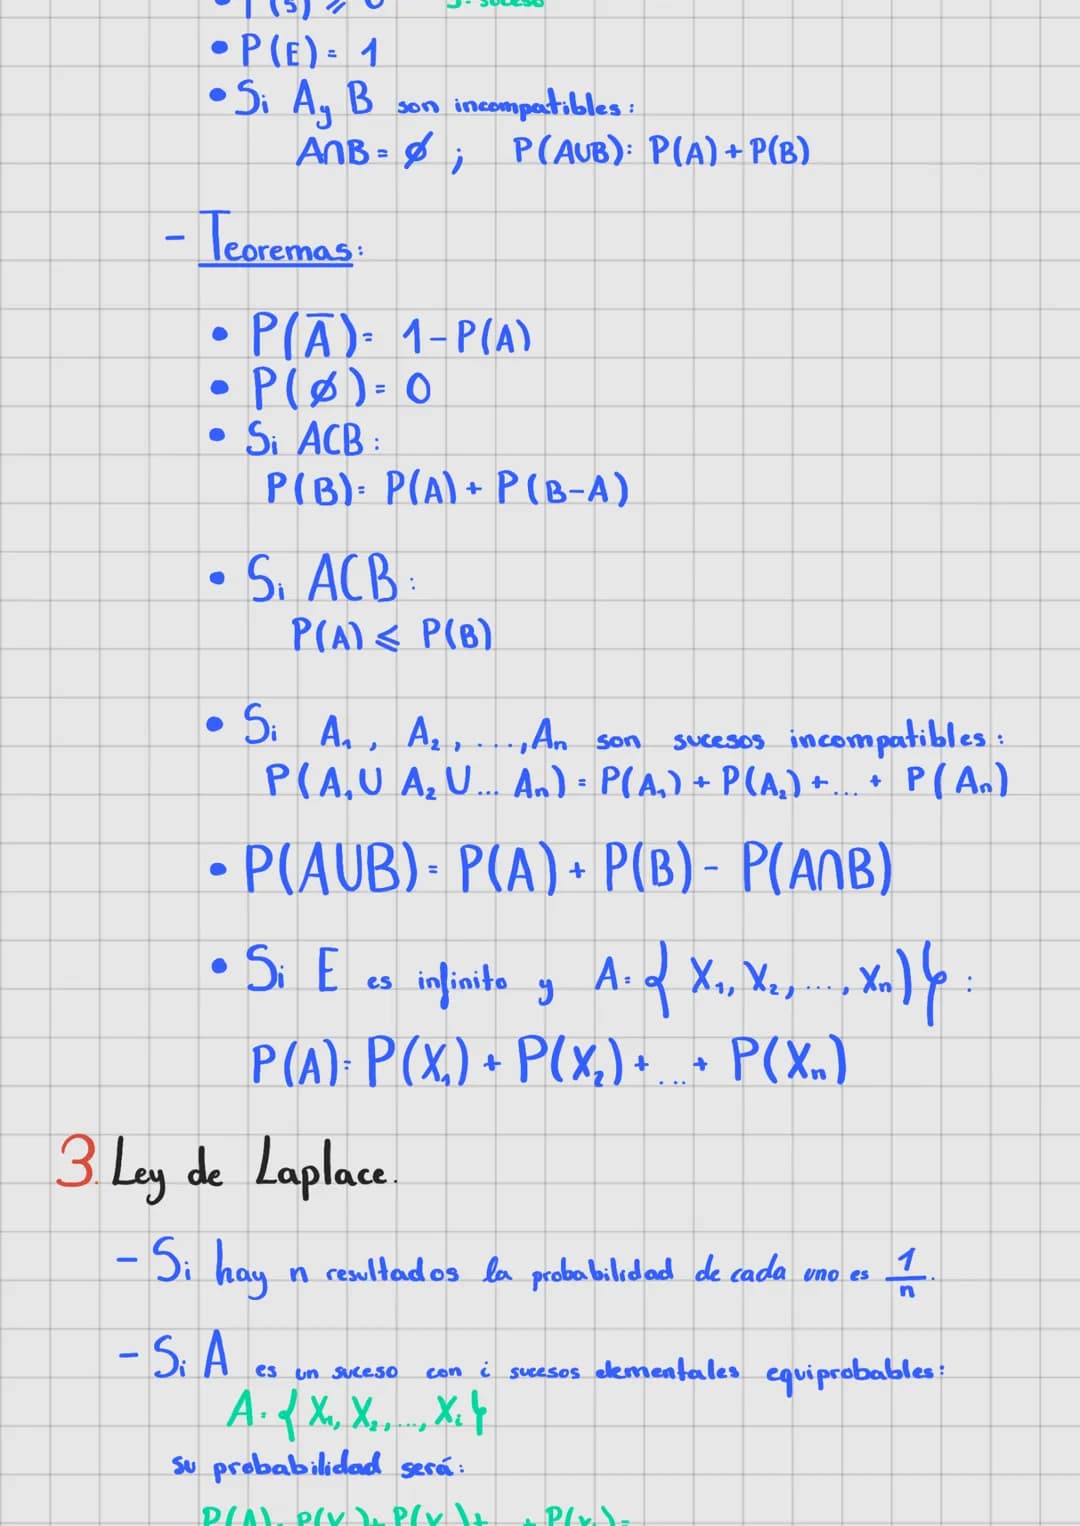 • P(S) ⩾ 0 S: suceso
• P(E) = 1
• Si A y B son incompatibles:
A∩B = ∅ ; P(A∪B): P(A) + P(B)
- Teoremas:
• P(Ā) = 1 - P(A)
• P(∅) = 0
• Si A⊂B:
P(B) = P(A) + P(B-A)
• Si A⊂B:
P(A) ⩽ P(B)
• Si A₁, A₂, ..., An son sucesos incompatibles:
P(A₁∪ A₂ ∪... An) = P(A₁) + P(A₂) + ... + P(An)
• P(A∪B) = P(A) + P(B) - P(A∩B)
• Si E es infinito y A = { X₁, X₂, ..., Xn)} :
P(A) = P(X₁) + P(X₂) + ... + P(Xn)
3. Ley de Laplace.
- Si hay n resultados la probabilidad de cada uno es 1/n.
- Si A es un suceso con i sucesos elementales equiprobables:
A = { X₁, X₂, ..., Xi }
su probabilidad será: